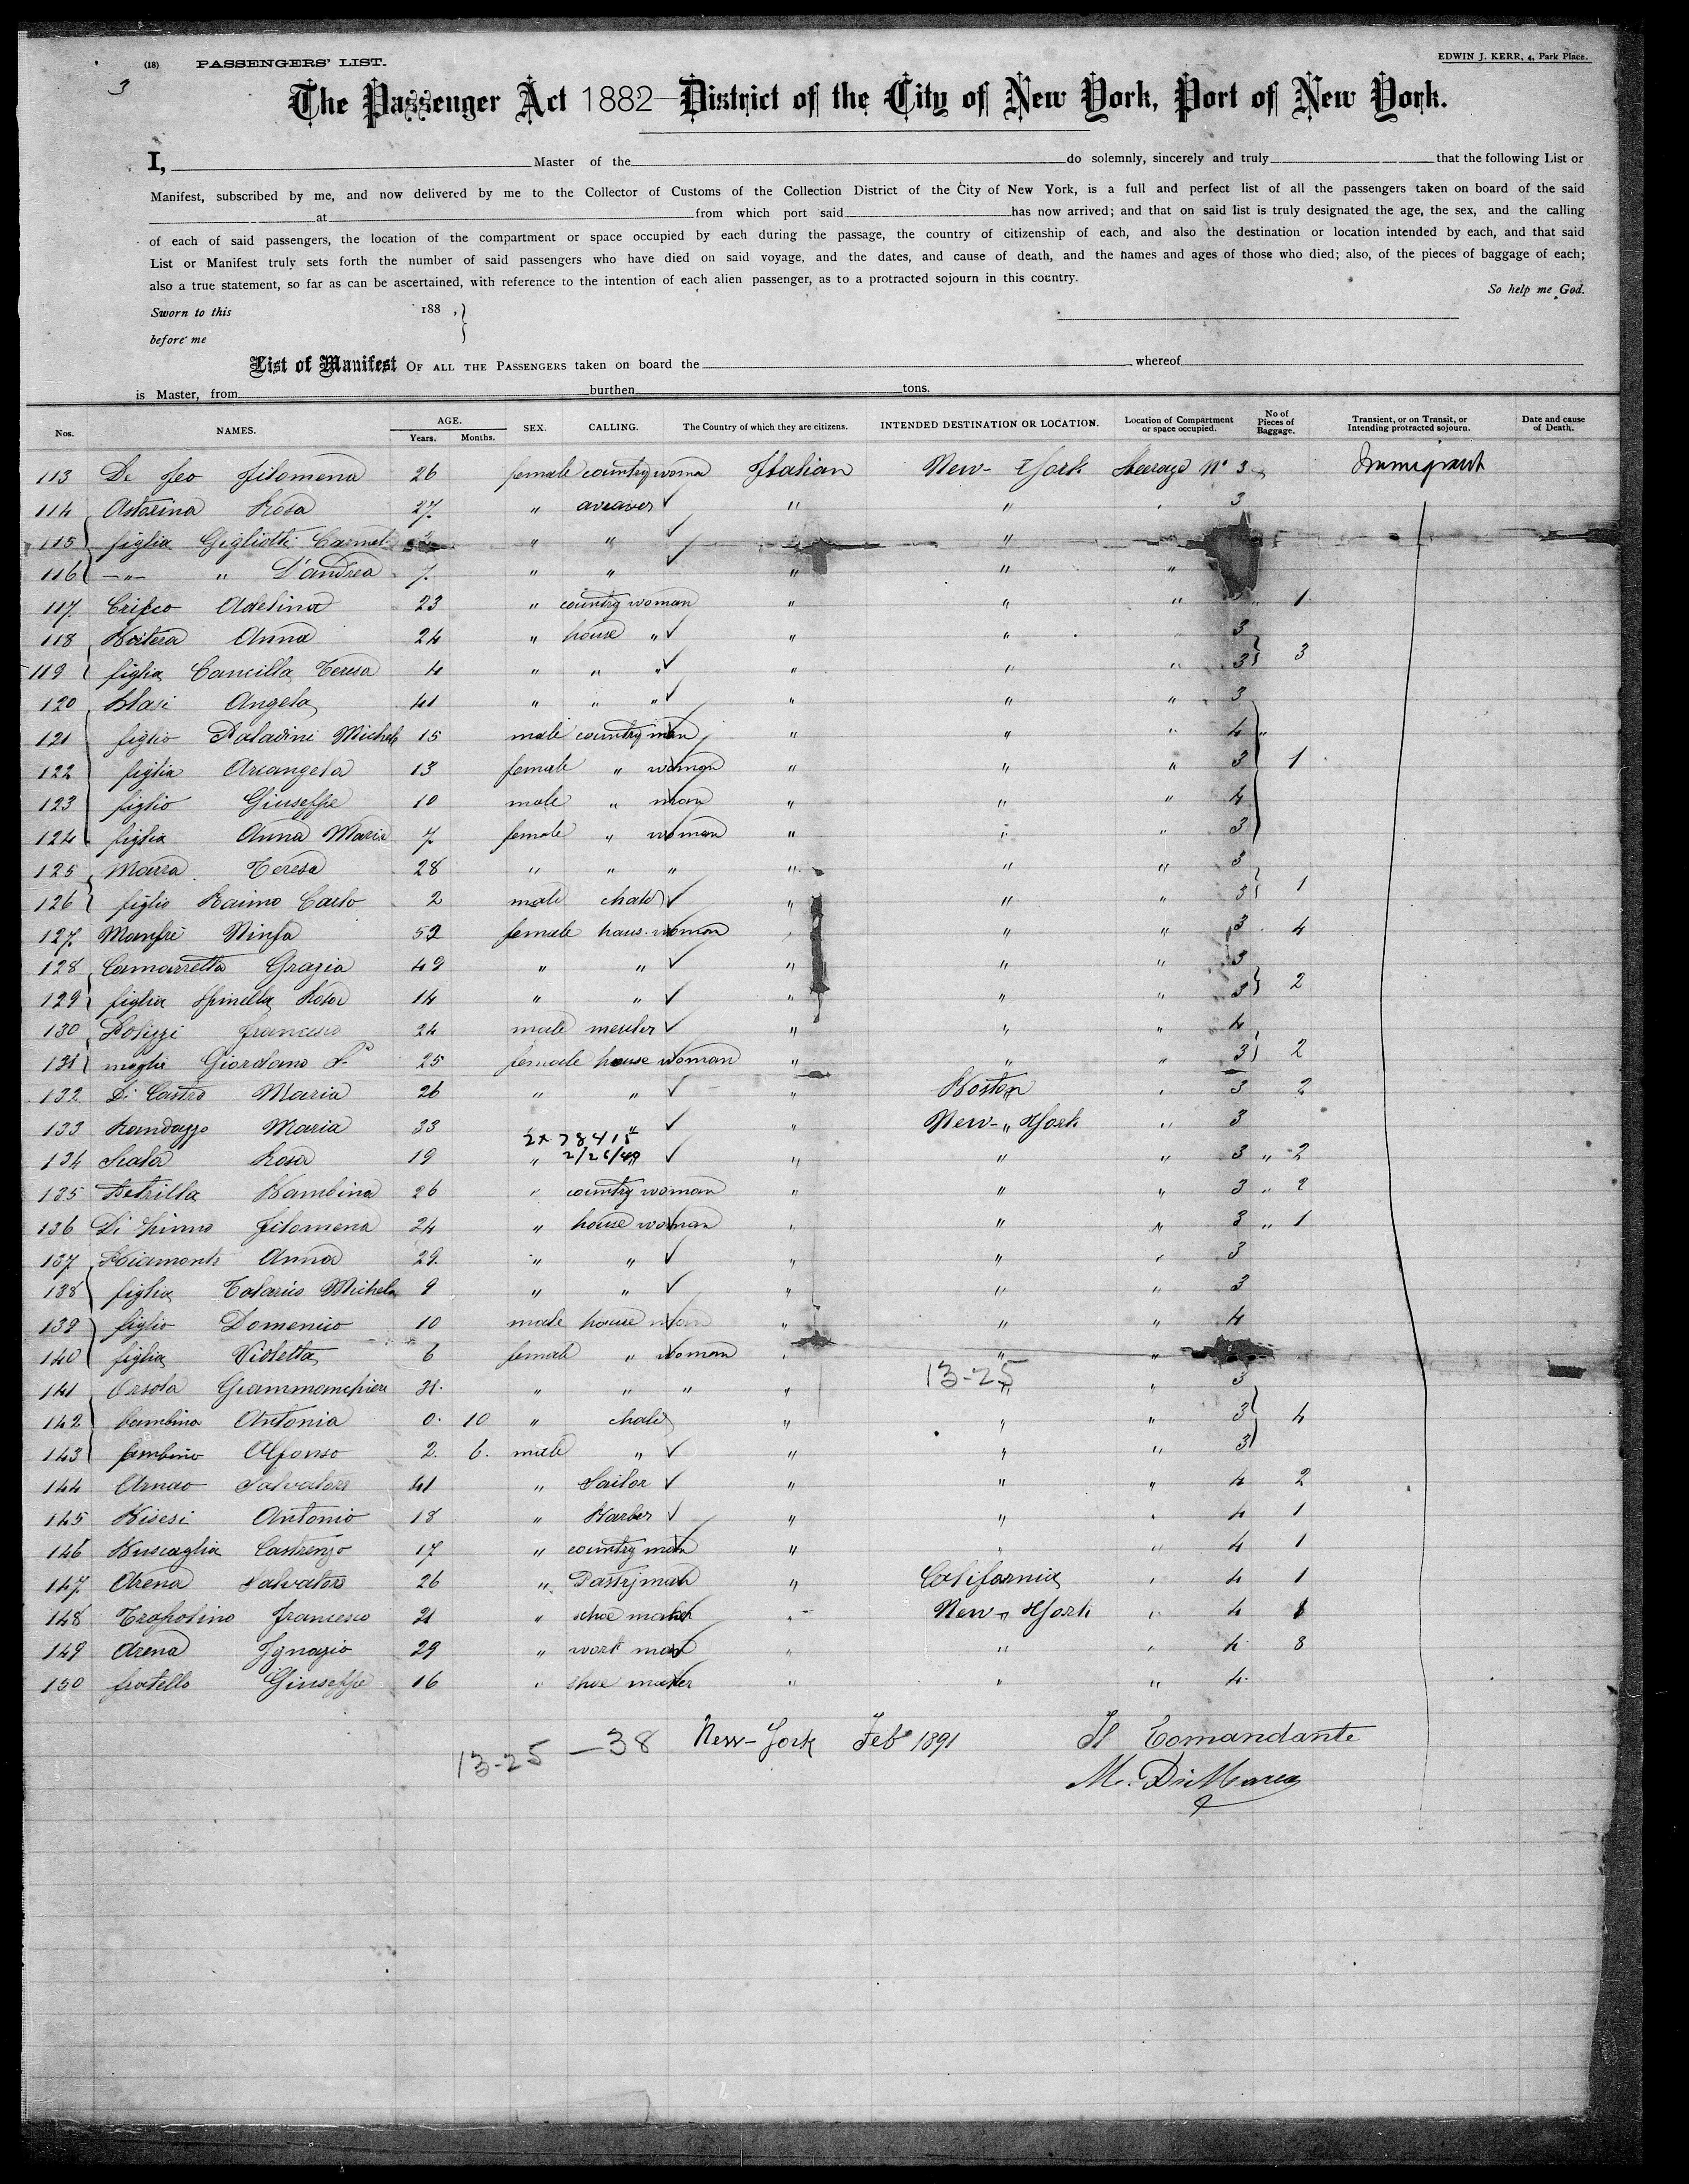 (18) PASSENGERS' LIST.
EDWIN J. KERR, 4, Park Place.
3
The Passenger Act 1882 District of the City of New York, Port of New York.
I, Master of the do solemnly, sincerely and truly that the following List or
Manifest, subscribed by me, and now delivered by me to the Collector of Customs of the Collection District of the City of New York, is a full and perfect list of all the passengers taken on board of the said
at from which port said has now arrived; and that on said list is truly designated the age, the sex, and the calling
of each of said passengers, the location of the compartment or space occupied by each during the passage, the country of citizenship of each, and also the destination or location intended by each, and that said
List or Manifest truly sets forth the number of said passengers who have died on said voyage, and the dates, and cause of death, and the names and ages of those who died; also, of the pieces of baggage of each;
also a true statement, so far as can be ascertained, with reference to the intention of each alien passenger, as to a protracted sojourn in this country.
So help me God.
Sworn to this 188 ,
before me
List of Manifest OF ALL THE PASSENGERS taken on board the whereof
is Master, from burthen tons.
Nos. NAMES. AGE. Years. Months. SEX. CALLING. The Country of which they are citizens. INTENDED DESTINATION OR LOCATION. Location of Compartment or space occupied. No of Pieces of Baggage. Transient, or on Transit, or Intending protracted sojourn. Date and cause of Death.
113 De Feo Filomena 26 female country woma Italian New-York Steerage No 3 Immigrant
114 Astorina Rosa 27 " " " 3
115 figlia Gigliotti Carmel " " "
116 -"- " D'andrea 7 " " " " "
117 Adelina 23 " country woman " " " 1
118 Anna 24 " house " " " 3
119 figlia Cancilla Teresa 4 " " " " " " 3 3
120 Blasi Angela 41 " " " " " " 3
121 figlio Paladini Michele 15 male country man " " " 4 "
122 figlia Arcangela 13 female " woman " " " 3 1
123 figlio Giuseppe 10 male " man " " " 4
124 figlia Anna Maria 7 female " woman " " " 3
125 Marra Teresa 28 " " " " " " 3
126 figlio Raimo Carlo 2 male chald " " " 3 1
127 Manfrè Ninfa 52 female haus. woman " " " 3 4
128 Camarretta Grazia 49 " " " " " 3
129 figlia Spinella Rosa 14 " " " " " 3 2
130 Polizzi Francesco 24 male " " 4
131 moglie Giordano 25 female house woman " " " 3 2
132 Di Castro Maria 26 " " " Boston " 3 2
133 Randazzo Maria 33 " " " New-York " 3
2x-78415
134 Scala Rosa 19 " 2/26/40 " " " 3 " 2
135 Petrilla Bambina 26 " country woman " " " 3 " 2
136 Filomena 24 " house woman " " " 3 " 1
137 Anna 29. " " " " " 3
138 figlia Talarico Michela 9 " " " " " 3
139 figlio Domenico 10 male house man " " " 4
140 figlia Violetta 6 female " woman " " "
13-25
141 Orsola Giammanchieri 31. " " " " " " 3
142 bambina Antonia 0. 10 " chald " " " 3 4
143 bambino Alfonso 2. 6. male " " " " 3
144 Arnao Salvatore 41 " Sailor " " " 4 2
145 Bisesi Antonio 18 " Barber " " " 4 1
146 Buscaglia Castrenzo 17 " country man " " " 4 1
147 Arena Salvatore 26 " Pastrjman " California " 4 1
148 Francesco 21 " schoe maker " New-York " 4 1
149 Arena Ignazio 29 " work man " " " 4 8
150 fratello Giuseppe 16 " shoe maker " " " 4
13-25 -38 New-York Feb° 1891 Il Comandante
M. DiMarco